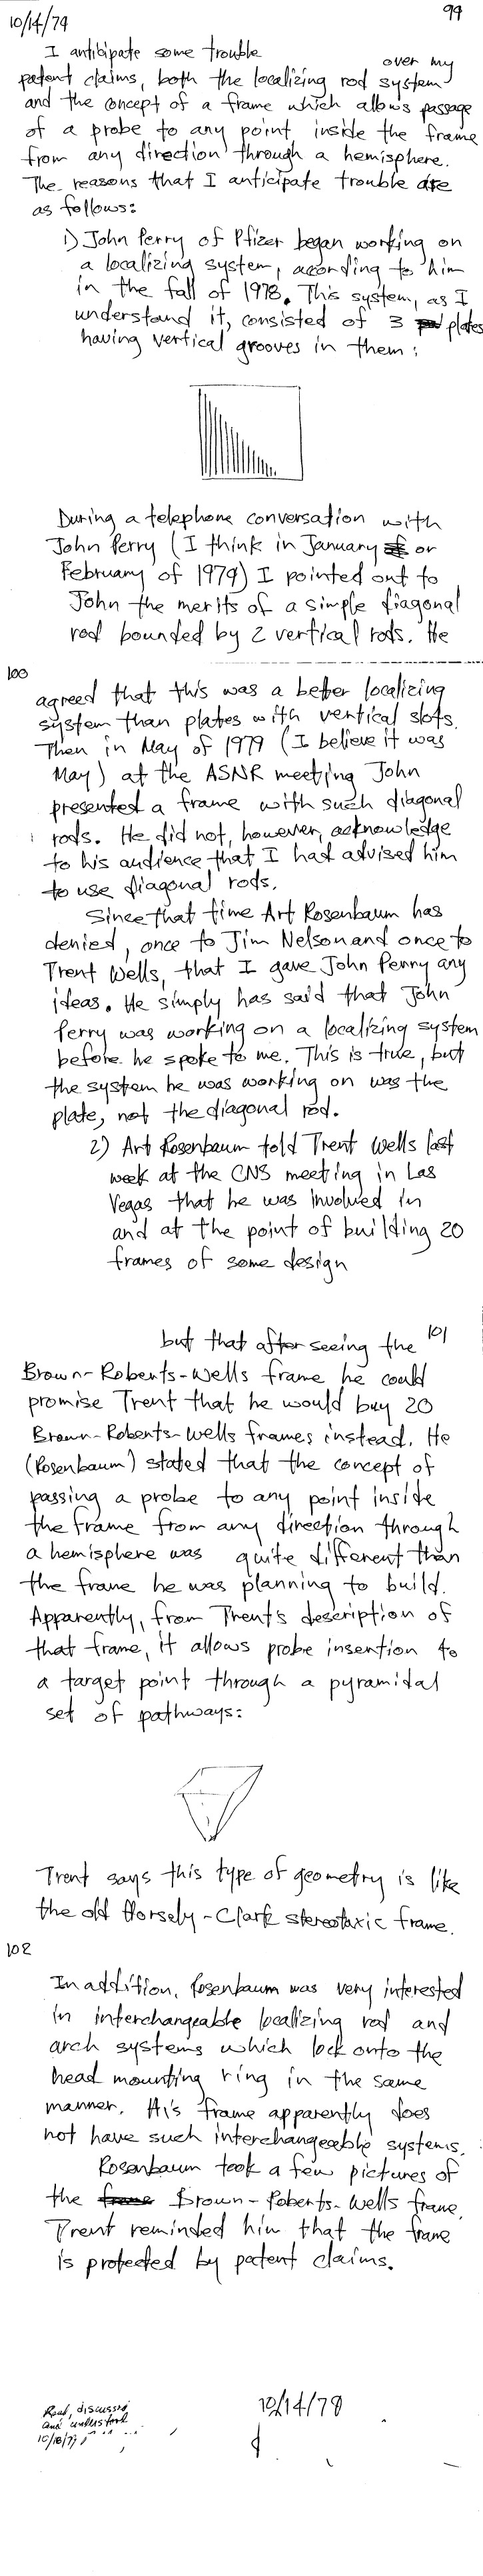 10/14/79
99
I antibipate some trouble
over my
patent claims, both the localizing rod system
and the concept of a frame which allows passage
of a probe to any point inside the frame
from any direction through a hemisphere.
The reasons that I anticipate trouble are
as follows:
1) John Perry of Pfizer began working on
a localizing system, according to him
in the fall of 1978. This system, as I
understand it, consisted of 3 plates
having vertical grooves in them:
During a telephone conversation with
John Perry (I think in January or
February of 1979) I pointed out to
John the merits of a simple diagonal
rod bounded by 2 vertical rods. He
100
agreed that this was a better localizing
system than plates with vertical slots.
Then in May of 1979 (I believe it was
May) at the ASNR meeting John
presented a frame with such diagonal
rods. He did not, however, acknowledge
to his audience that I had advised him
to use diagonal rods.
Since that time Art Rosenbaum has
denied, once to Jim Nelson and once to
Trent Wells, that I gave John Perry any
ideas. He simply has said that John
Perry was working on a localizing system
before he spoke to me. This is true, but
the system he was working on was the
plate, not the diagonal rod.
2) Art Rosenbaum told Trent Wells last
week at the CNS meeting in Las
Vegas that he was involved in
and at the point of building 20
frames of some design
but that after seeing the
101
Brown-Roberts-Wells frame he could
promise Trent that he would buy 20
Brown-Roberts-Wells frames instead. He
(Rosenbaum) stated that the concept of
passing a probe to any point inside
the frame from any direction through
a hemisphere was quite different than
the frame he was planning to build.
Apparently, from Trent's description of
that frame, it allows probe insention to
a target point through a pyramidal
set of pathways:
Trent says this type of geometry is like
the old Horsely-Clark stereotaxic frame.
102
In addition, Rosenbaum was very interested
in interchangeable localizing rod and
arch systems which lock onto the
head mounting ring in the same
manner. His frame apparently does
not have such interchangeable systems.
Rosenbaum took a few pictures of
the frame Brown-Roberts-Wells frame.
Trent reminded him that the frame
is protected by patent claims.
Read, discussed
and understood
10/18/79
10/14/79